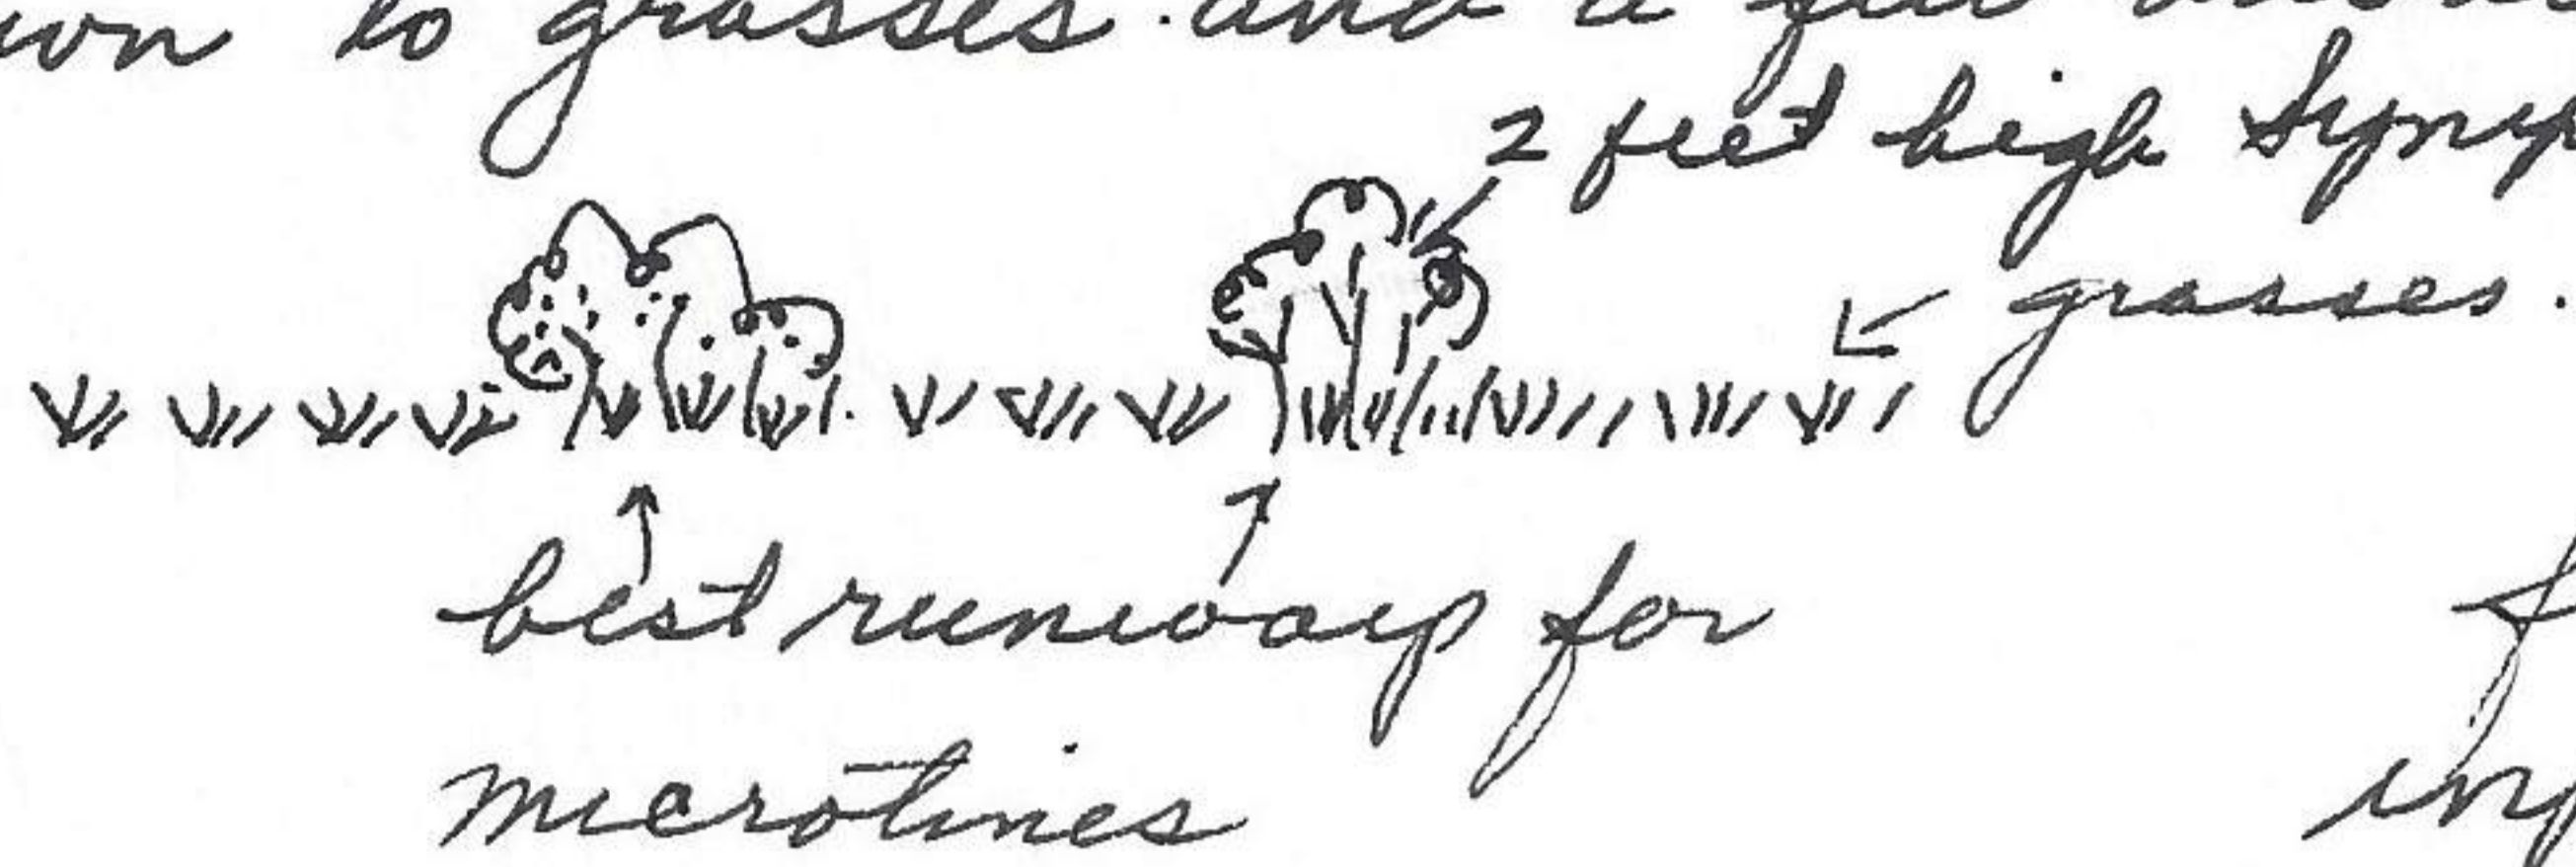 to grasses and a few
2 feet high
grasses.
best runways for
microtines